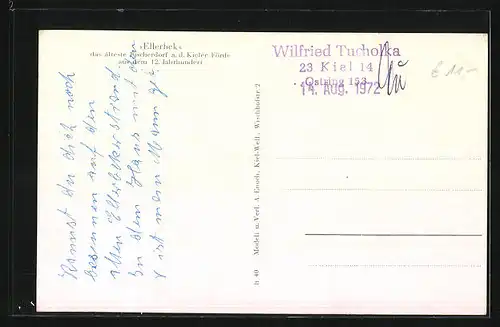 »Ellerbek«
das älteste Fischerdorf a. d. Kieler Förde
aus dem 12. Jahrhundert
Wilfried Tucholka
23 Kiel 14
Ostring 153
14. AUG. 1972
Kannst du dich noch
besinnen auf den
alten Ellerbekerstrand.
In dem Haus mit dem
x ist mein Mann
Modell u. Verl. A. Knoch, Kiel-Well., Wischhofstr. 2
B 40